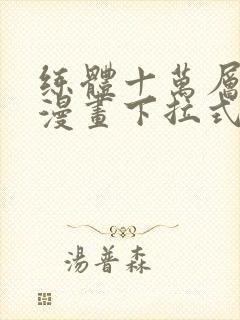 練體十萬層
漫畫下拉式
湯普森